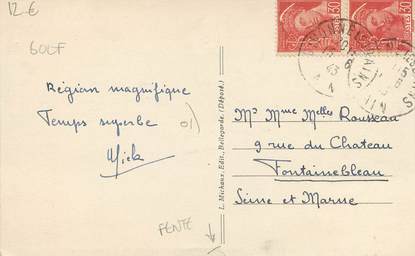 12 €
GOLF
Région magnifique
Temps superbe
Mick
FENTE
L. Michaux, Edit., Bellegarde, (Déposé).
30
30
Mr Mme Melles Rousseau
9 rue du Chateau
Fontainebleau
Seine et Marne